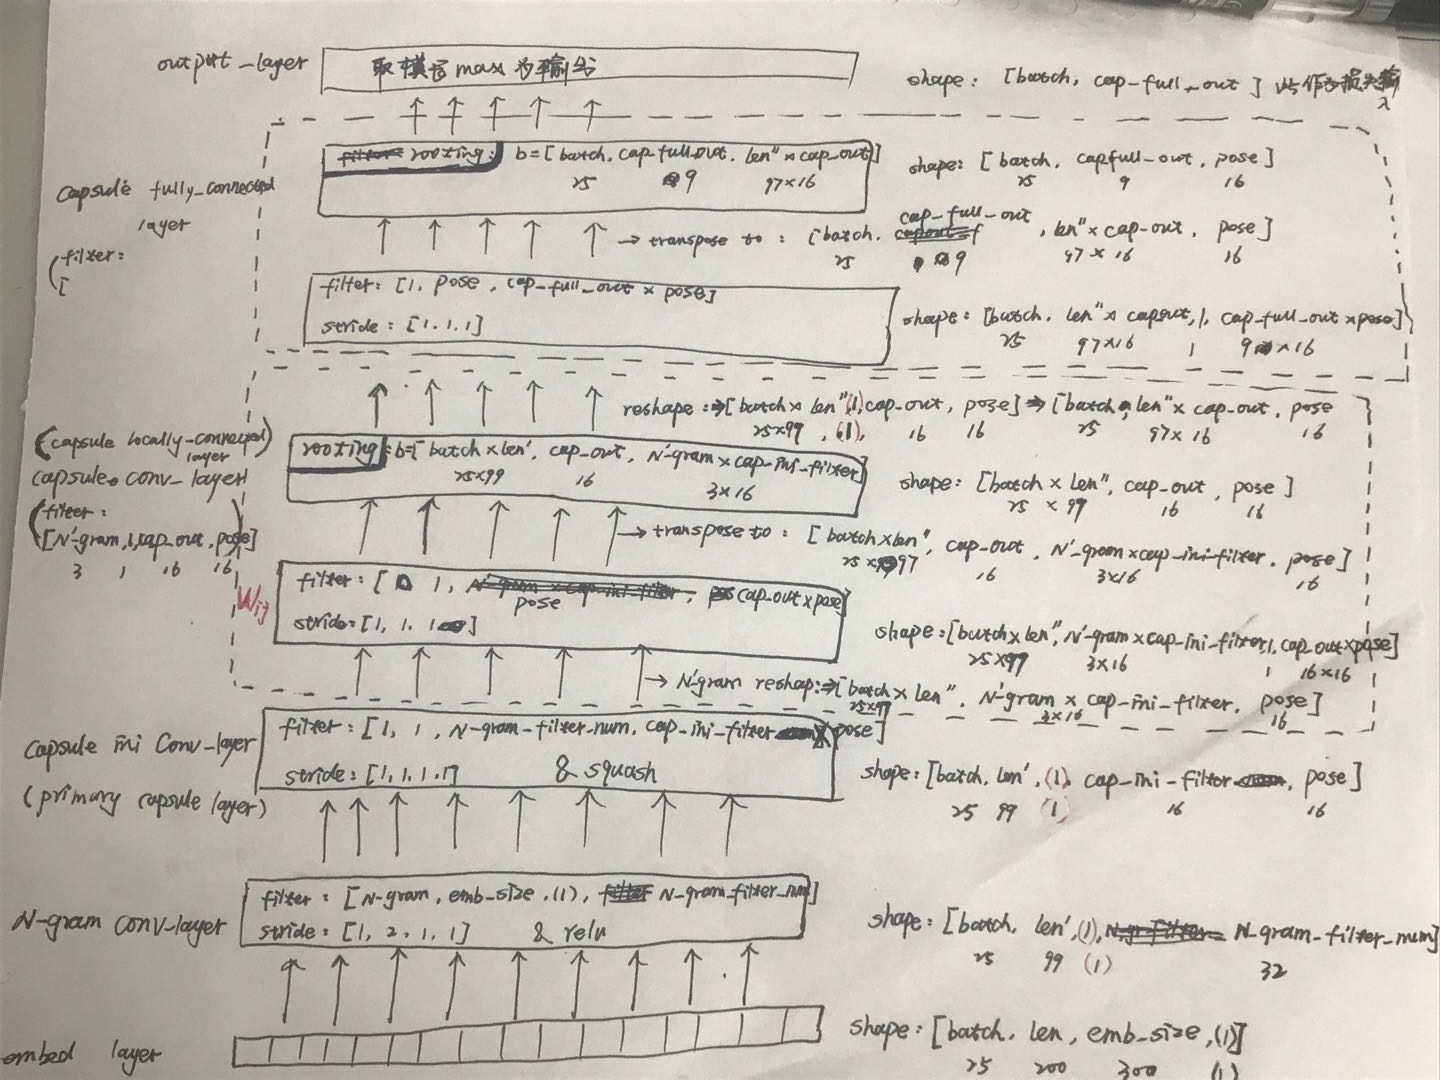 output_layer 取模长max为输出 shape: [batch, cap-full-out] 此作为损失输入
rooting: b=[batch, cap-full-out, len''×cap-out] shape: [batch, capfull-out, pose]
25 9 97×16 25 9 16
capsule fully_connected layer
cap-full-out
→transpose to: [batch, , len''×cap-out, pose]
25 9 97×16 16
(filter:
[
filter: [1, pose, cap-full-out × pose]
stride: [1.1.1] shape: [batch, len''× capout, 1, cap-full-out×pose]
25 97×16 1 9×16
reshape:⇒[batch× len'',(1),cap-out, pose]⇒[batch, len''× cap-out, pose
25×99, (1), 16 16 25 97×16 16
(capsule locally-connected) layer
rooting: b=[batch×len', cap-out, N'-gram×cap-ini-filter]
25×99 16 3×16
capsule conv_layer shape: [batch×len'', cap-out, pose]
25 × 99 16 16
(filter:
[N'-gram,1,cap-out, pose])
3 1 16 16
→transpose to: [batch×len'', cap-out, N'-gram×cap-ini-filter, pose]
25×97 16 3×16 16
Wij
filter: [ 1, pose, cap-out×pose]
stride=[1, 1. 1] shape:[batch×len'', N'-gram×cap-ini-filter,1, cap-out×pose]
25×99 3×16 1 16×16
→ N'gram reshap:⇒[batch×len'', N'-gram × cap-ini-filter, pose]
25×97 3×16 16
capsule ini Conv-layer
filter: [1, 1, N-gram-filter-num, cap-ini-filter × pose]
stride: [1.1.1.1] & squash
(primary capsule layer)
shape: [batch, len', (1), cap-ini-filter, pose]
25 99 (1) 16 16
N-gram conv-layer
filter: [N-gram, emb-size, (1), N-gram-filter-num]
stride: [1, 2, 1, 1] & relu
shape: [batch, len',(1), N-gram-filter-num]
25 99 (1) 32
embed layer shape: [batch, len, emb-size, (1)]
25 200 300 (1)